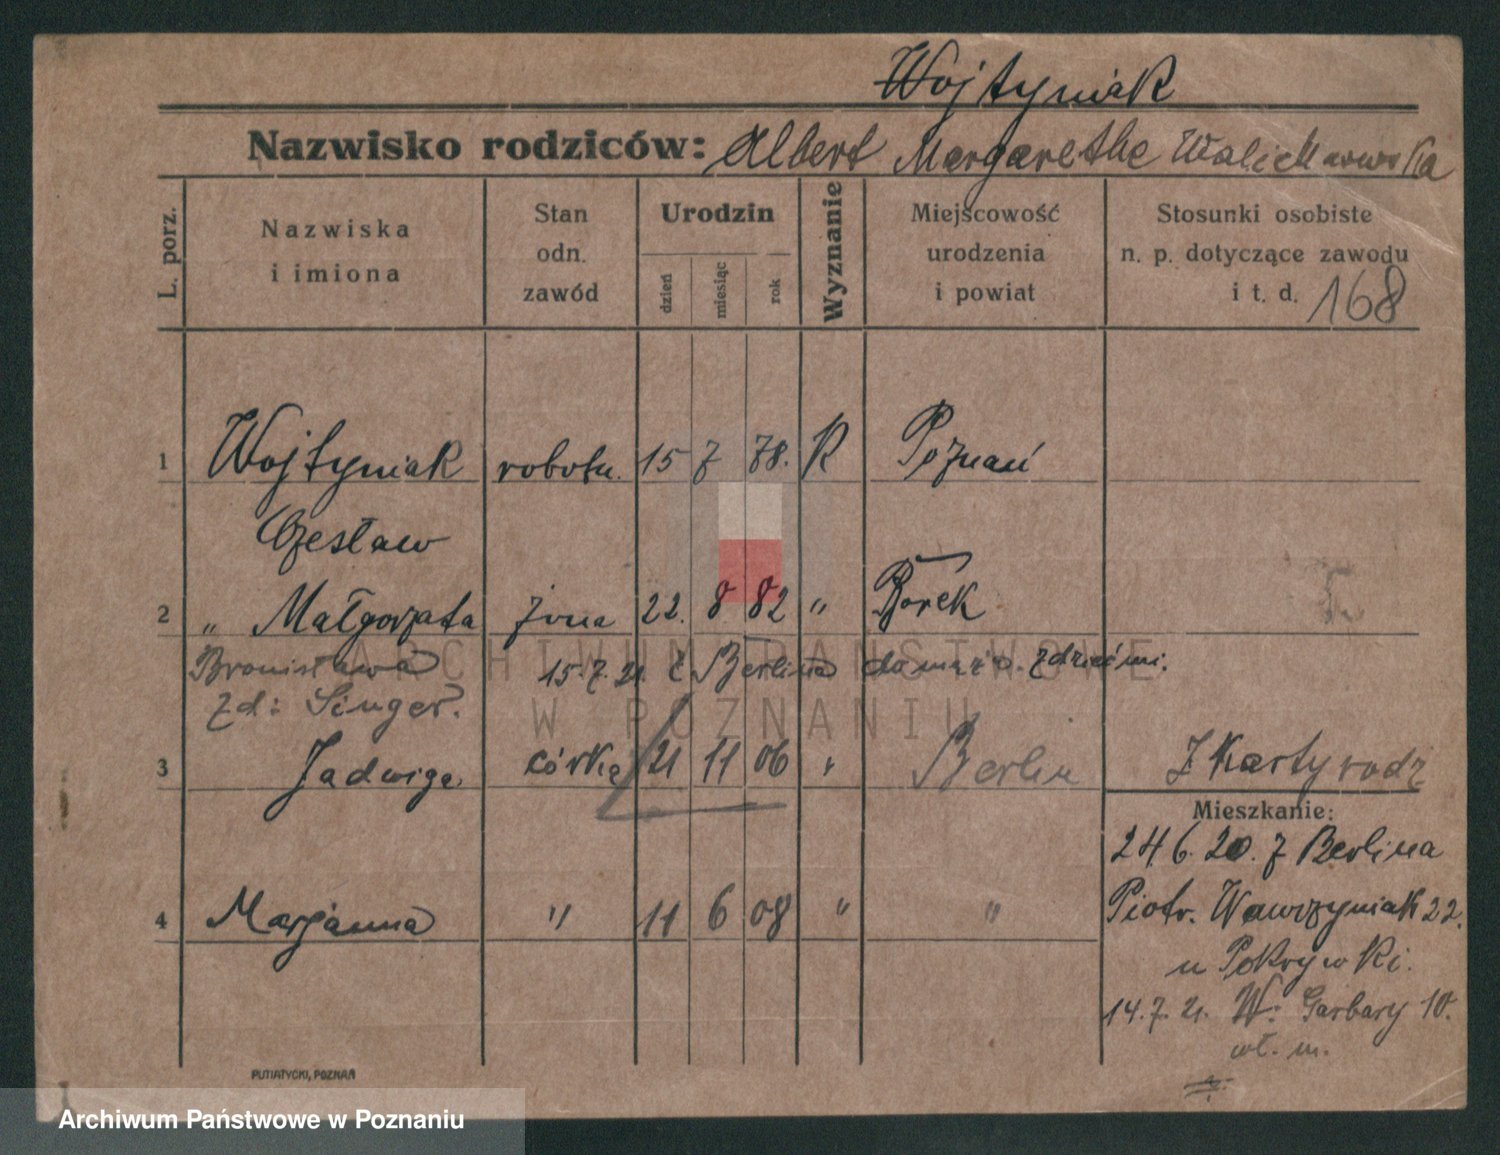 Wojtyniak
Nazwisko rodziców: Albert Margarethe
L. porz.
Nazwiska i imiona
Stan odn. zawód
Urodzin
dzień miesiąc rok
Wyznanie
Miejscowość urodzenia i powiat
Stosunki osobiste n. p. dotyczące zawodu i t. d. 168
1 Wojtyniak robotn. 15 7 78. R Poznań
Czesław
2 „ Małgorzata żona 22. 8 82 „ Borek
Bronisława 15.7.21. z Berlina do z dziećmi.
zd: Singer.
3 Jadwiga córkia 21 11 06 „ Berlin Z Karty rodz
Mieszkanie:
24.6.20. z Berlina
4 Marjanna „ 11 6 08 „ „ Piotr. Wawrzyniak 22.
u Pokrywki.
14.7.21. W. Garbary 10.
wł. m.
PUTIATYCKI, POZNAŃ
ARCHIWUM PAŃSTWOWE
W POZNANIU
Archiwum Państwowe w Poznaniu